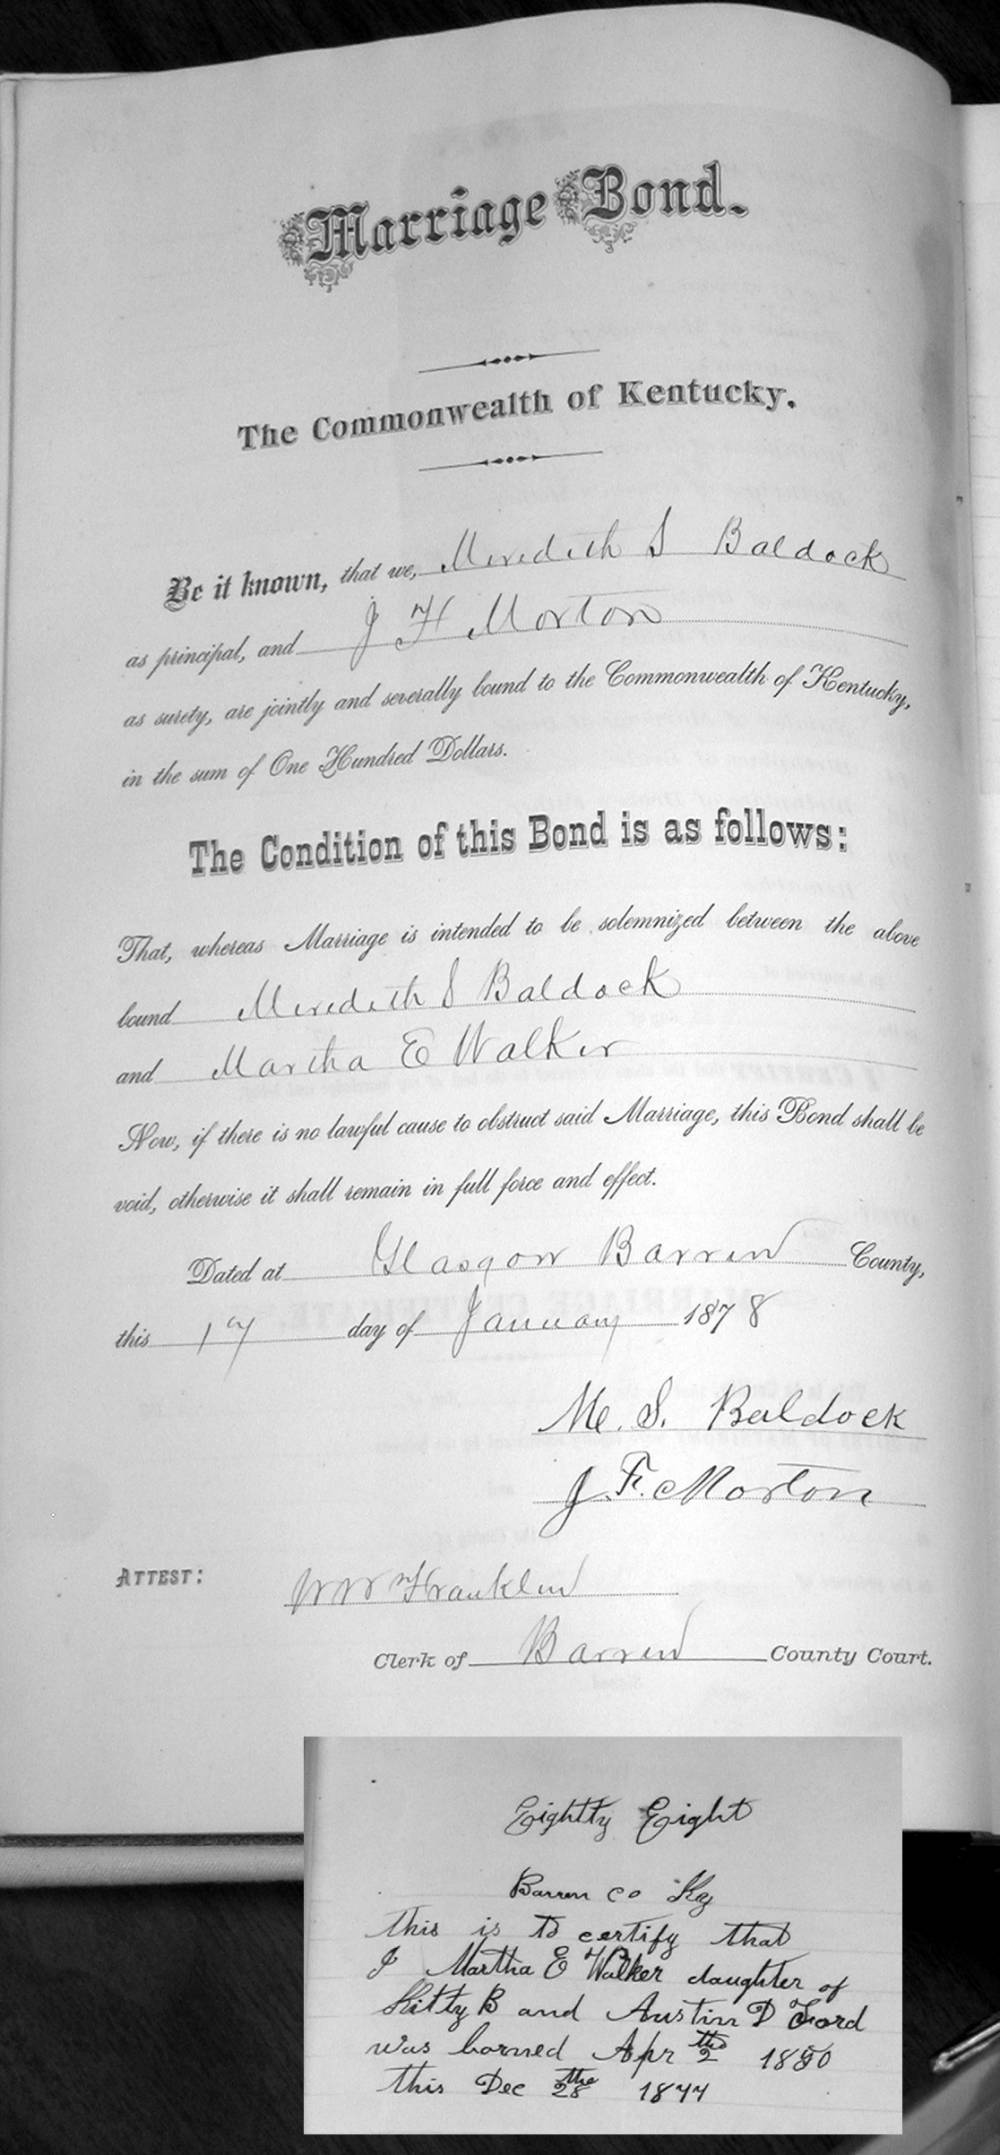 Marriage Bond.
The Commonwealth of Kentucky.
Be it known, that we, Meredith S Baldock
as principal, and J H Morton
as surety, are jointly and severally bound to the Commonwealth of Kentucky,
in the sum of One Hundred Dollars.
The Condition of this Bond is as follows:
That, whereas Marriage is intended to be solemnized between the above
bound Meredith S Baldock
and Martha E Walker
Now, if there is no lawful cause to obstruct said Marriage, this Bond shall be
void, otherwise it shall remain in full force and effect.
Dated at Glasgow Barren County,
this day of January 1878
M. S. Baldock
J. F. Morton
ATTEST: W W Franklin
Clerk of Barren County Court.
Eightty Eight
Barren co Ky
this is to certify that
I Martha E Walker daughter of
Kitty B and Austin D Ford
was borned Apr the 2 1850
this Dec the 28 1877